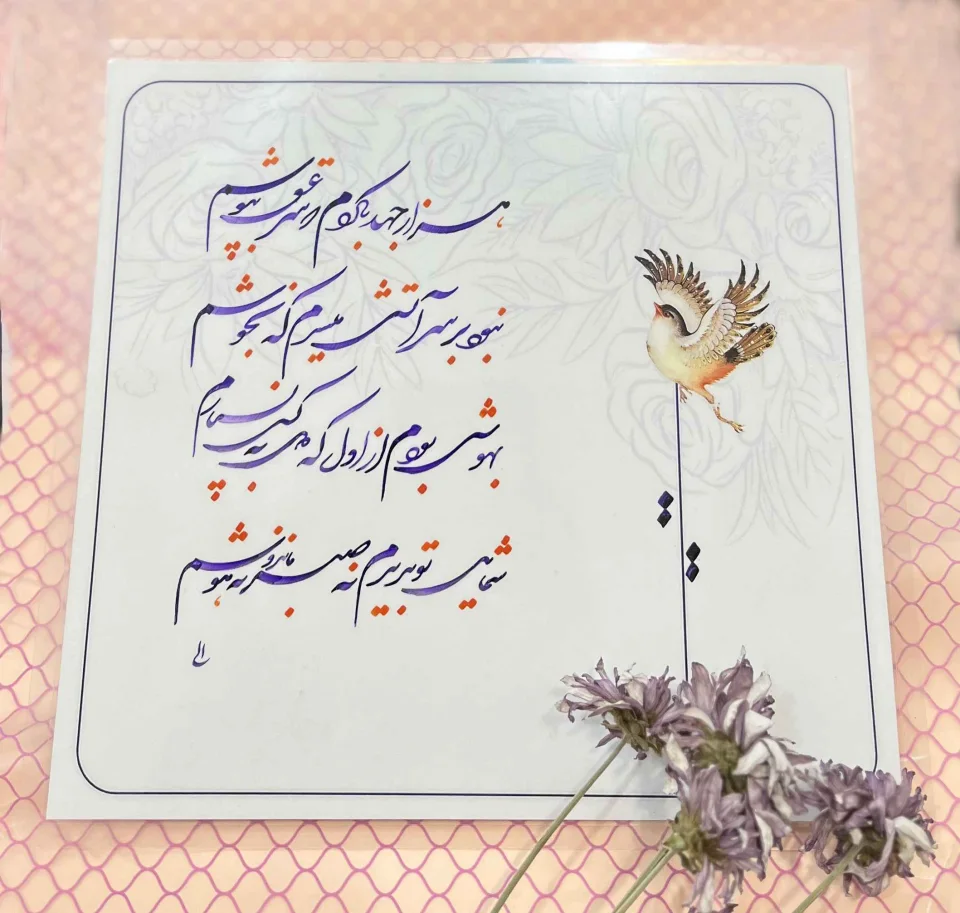 هزار جهد بکردم سر عشق بپوشم
نبود بر سر آتش میسرم که نجوشم
بهوش بودم از اول که دل به کس نسپارم
شمایل تو بدیدم نه صبر ماند و نه هوشم